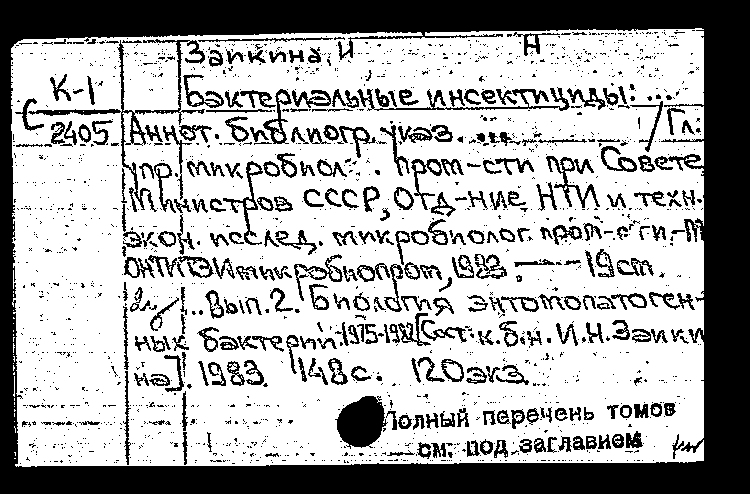 Заикина, И Н
К-1
Бактериальные инсектициды: ...
С 2405
Аннот. библиогр. указ. ... / Гл.
упр. микробиол. пром-сти при Совете
Министров СССР, Отд-ние НТИ и техн.
экон. исслед. микробиолог. пром-сти. - М
ОНТИТЭИмикробиопром, 1983. — 19 см.
...Вып. 2. Биология энтомопатоген-
ных бактерий: 1975-1982 [Сост.: к.б.н. И.Н. Заики
на]. 1983. 148 с. 120 экз.
Полный перечень томов
см. под заглавием